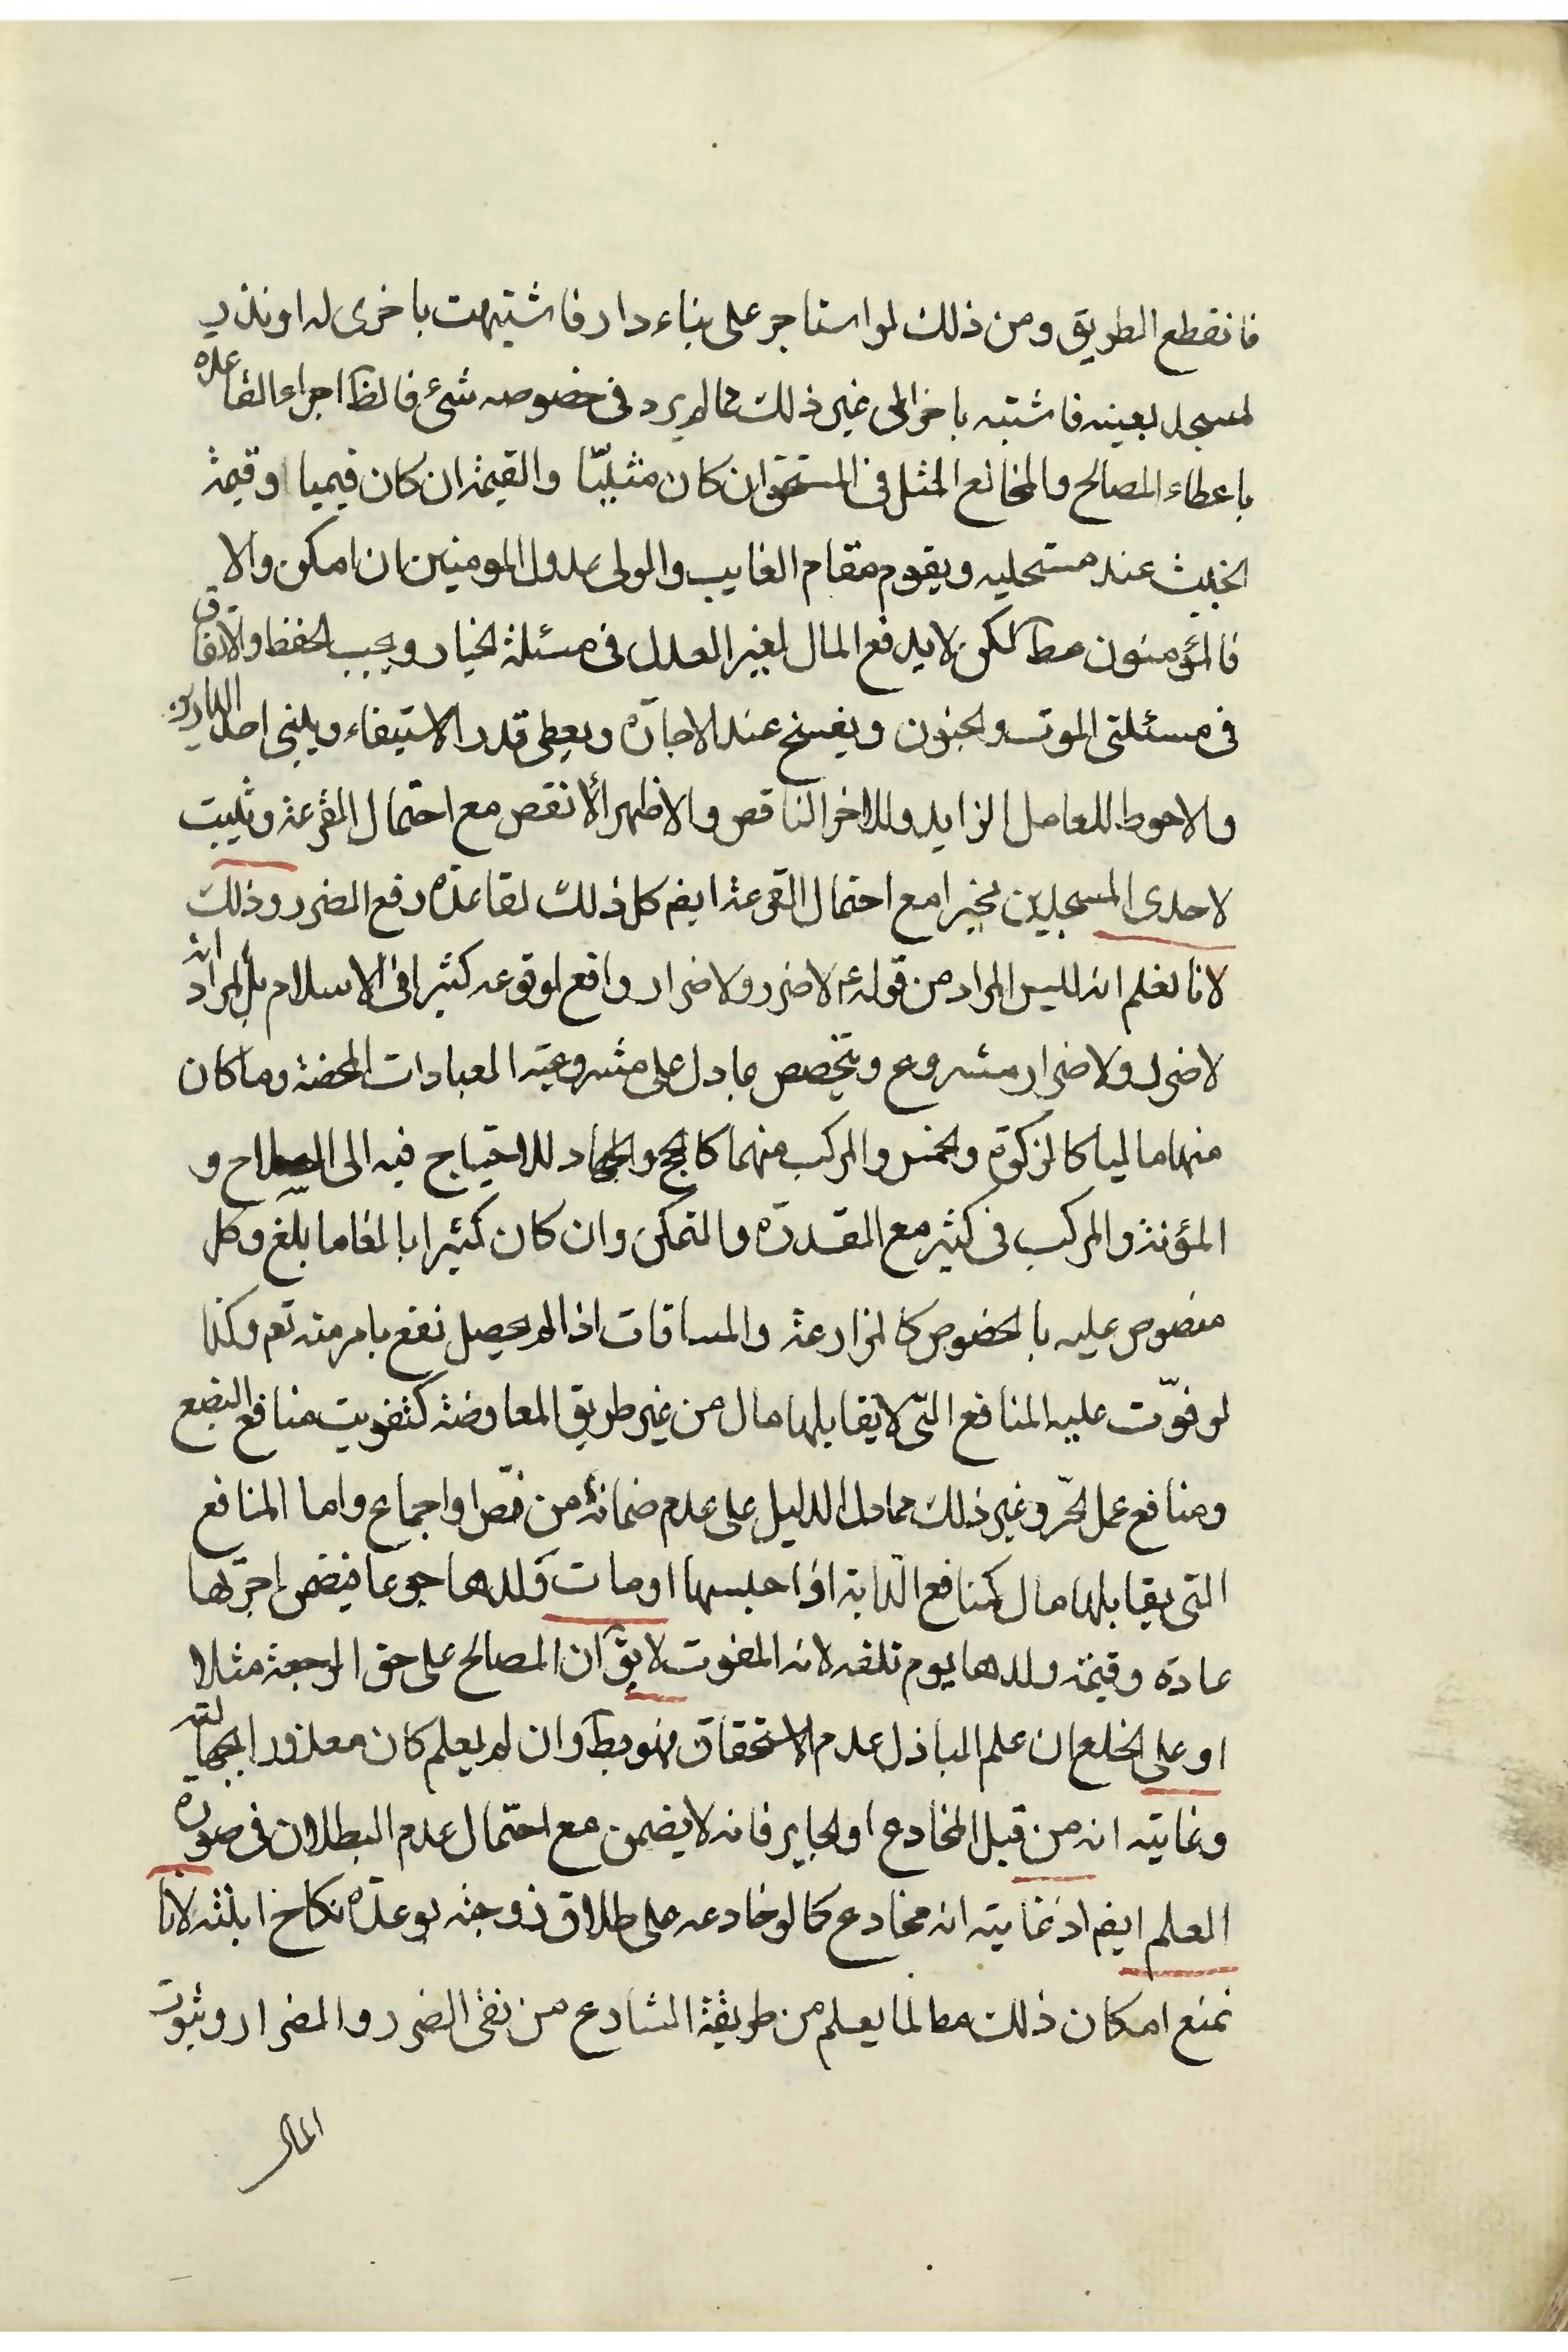 فانقطع الطريق ومن ذلك لو استاجر على بناء دار فاشتبهت باخرى له او نذر
لمسجد بعينه فاشتبه باخر الى غير ذلك مما لم يرد فى خصوصه شئ فالظ اجراء القاعده
باعطاء المصالح والمخالع المثل فى المستحق ان كان مثليّا والقيمة ان كان قيميا او قيمة
الخبيث عند مستحليه ويقوم مقام الغايب والولى عدول المومنين ان امكن والا
فالمؤمنون مط لكن لا يدفع المال لغير العدل فى مسئلة الخيار ويجب الحفظ والانفاق
فى مسئلتى الموت والجنون ويفسخ عند الاجارة ويعطى قدر الاستيفاء ويبنى احد الدارين
والاحوط للعامل الزايد وللاخر الناقص والاظهر الانقص مع احتمال القرعة ويثبت
لاحدى المسجدين مخيرا مع احتمال القرعة ايضم كل ذلك لقاعدة رفع الضرر وذلك
لانا نعلم انه ليس المراد من قوله ع لا ضرر ولا ضرار واقع لوقوعه كثيرا فى الاسلام بل المراد انه
لا ضرر ولا ضرار مشروع ويتخصص بما دل على مشروعية العبادات المحضة وما كان
منها ماليا كالزكوة والخمس والمركب منهما كالحج والجهاد للاحتياج فيه الى السلاح و
المؤنة والمركب فى كثير مع القدرة والتمكن وان كان كثيرا بالغا ما بلغ وكل
منصوص عليه بالخصوص كالمزارعة والمساقات اذا لم يحصل نفع بامر منه تعم وكذا
لو فوّت عليه المنافع التى لا يقابلها مال من غير طريق المعاوضة كتفويت منافع البضع
ومنافع عمل الحرّ وغير ذلك مما دل الدليل على عدم ضمانه من نصّ او اجماع واما المنافع
التى يقابلها مال كمنافع الدّابة اذا حبسها او مات ولدها جوعا فيضمن اجرتها
عادة وقيمة ولدها يوم تلفه لانه المفوت لا يقّ ان المصالح على حق الرجعة مثلا
او على الخلع ان علم الباذل عدم الاستحقاق فهو بط وان لم يعلم كان معذورا بجهالته
وغايته انه من قبل المخادع او الجاير فانه لا يضمن مع احتمال عدم البطلان فى صورة
العلم ايضم اذ غايته انه مخادع كما لو خادعه على طلاق زوجته بوعده نكاح ابنته لانا
نمنع امكان ذلك مط لما يعلم من طريقة الشارع من نفى الضرر والضرار وثبوت
المال